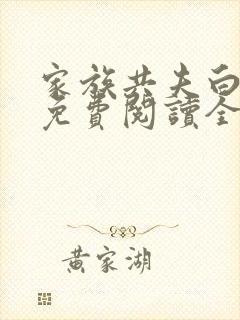 家族共夫白
免費閱讀全
黃家湖